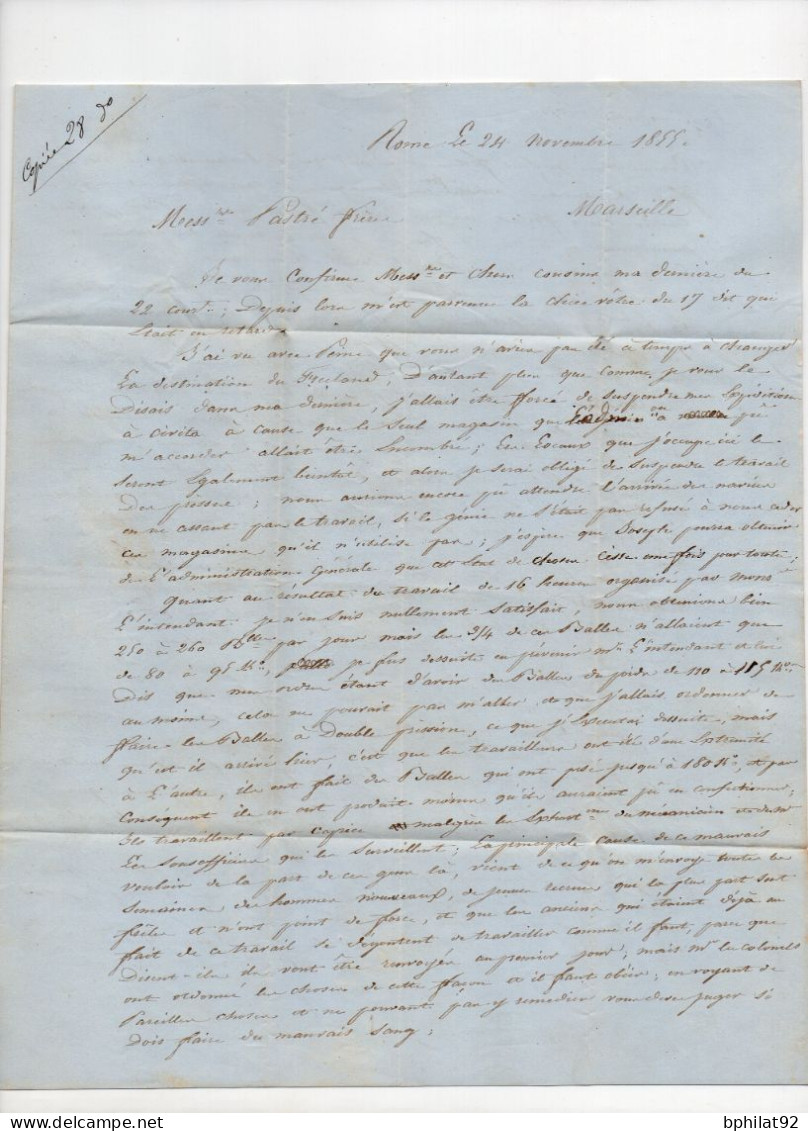 Copiée 28 do
Rome Le 24 Novembre 1855.
Messrs Pastré frères Marseille
Je vous Confirme Messrs et chers cousins ma dernière du
22 court; Depuis lors m'est parvenue la chère vôtre du 17 dit qui
était en retard.
J'ai vu avec Peine que vous n'aviez pas été à temps à changer
La destination du ; D'autant plus que comme je vous le
Disais dans ma dernière, j'allais être forcé de suspendre mes Expéditions
à Civita à cause que le seul magasin que a pû
m'accorder allait être Encombré; Les Locaux que j'occupe ici le
seront Egalement bientôt, et alors je serai obligé de suspendre le travail
Des presses; nous aurions encore pû attendre L'arrivée des navires
en ne cessant pas le travail, si le génie ne s'était pas refusé à nous céder
des magasins qu'il n'utilise pas; j'espère que Joseph pourra obtenir
de L'administration Générale que cet état de choses cesse une fois pour toute;
Quant au résultat du travail de 16 heures organisé par Monsr
L'intendant je n'en suis nullement satisfait, nous obtenions bien
250 à 260 Blles par jour mais les 3/4 de ces Balles n'allaient que
de 80 à 95 Ko, je fus dessuite en prévenir Mr L'intendant et lui
Dis que mes ordres étant d'avoir des Balles du poids de 110 à 115 Kos
au moins, cela ne pouvait pas m'aller, et que j'allais ordonner de
faire les Balles à Double pression, ce que j'Executai dessuite, mais
qu'est il arrivé hier, c'est que les travailleurs ont été d'une Extremité
à L'autre, ils ont fait des Balles qui ont pesé jusqu'à 180 Ko, et par
Consequent ils en ont produit moins qu'ils auraient pû en confectionner;
Ils travaillent par caprice malgrés les du mécanicien et de Mr
Les Sousofficiers qui les Surveillent; La principale cause de ce mauvais
vouloir de la part de ces gens là, vient de ce qu'on m'envoye toutes les
Semaines des hommes nouveaux, de jeunes recrues qui la plus part sont
faibles et n'ont point de force, et que les anciens qui étaient déjà au
fait de ce travail se dégoutent de travailler comme il faut, parce que
Disent-ils ils vont être renvoyés au premier jour; mais Mrs les colonels
ont ordonné les choses de cette façon et il faut obéir; en voyant de
Pareilles choses et ne pouvant pas y remedier vous devez juger si
Dois faire du mauvais Sang;
bphilat92